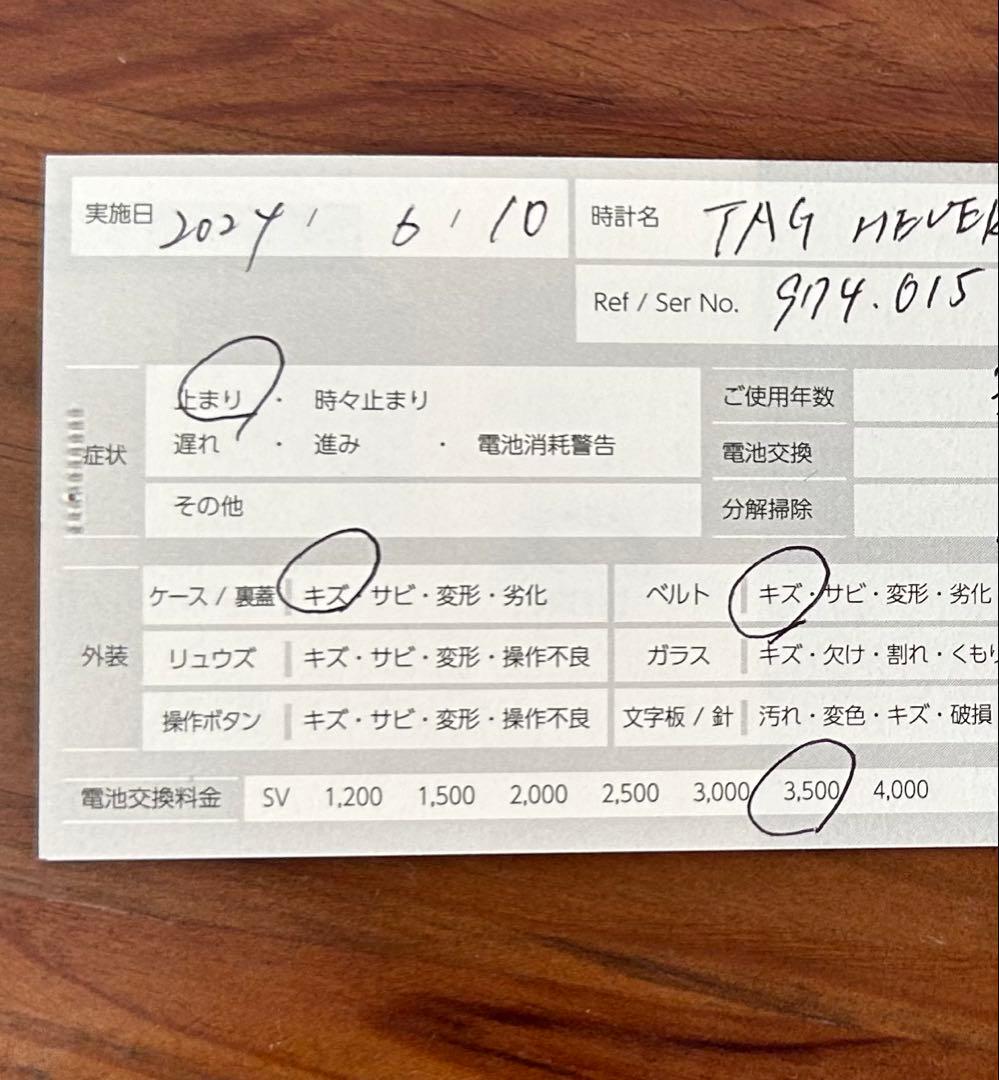 実施日 2024 / 6 / 10
時計名 TAG HEUER
Ref / Ser No. 974.015
症状
止まり ・ 時々止まり
遅れ ・ 進み ・ 電池消耗警告
その他
ご使用年数
電池交換
分解掃除
外装
ケース / 裏蓋 キズ・サビ・変形・劣化
ベルト キズ・サビ・変形・劣化
リュウズ キズ・サビ・変形・操作不良
ガラス キズ・欠け・割れ・くもり
操作ボタン キズ・サビ・変形・操作不良
文字板 / 針 汚れ・変色・キズ・破損
電池交換料金 SV 1,200 1,500 2,000 2,500 3,000 3,500 4,000